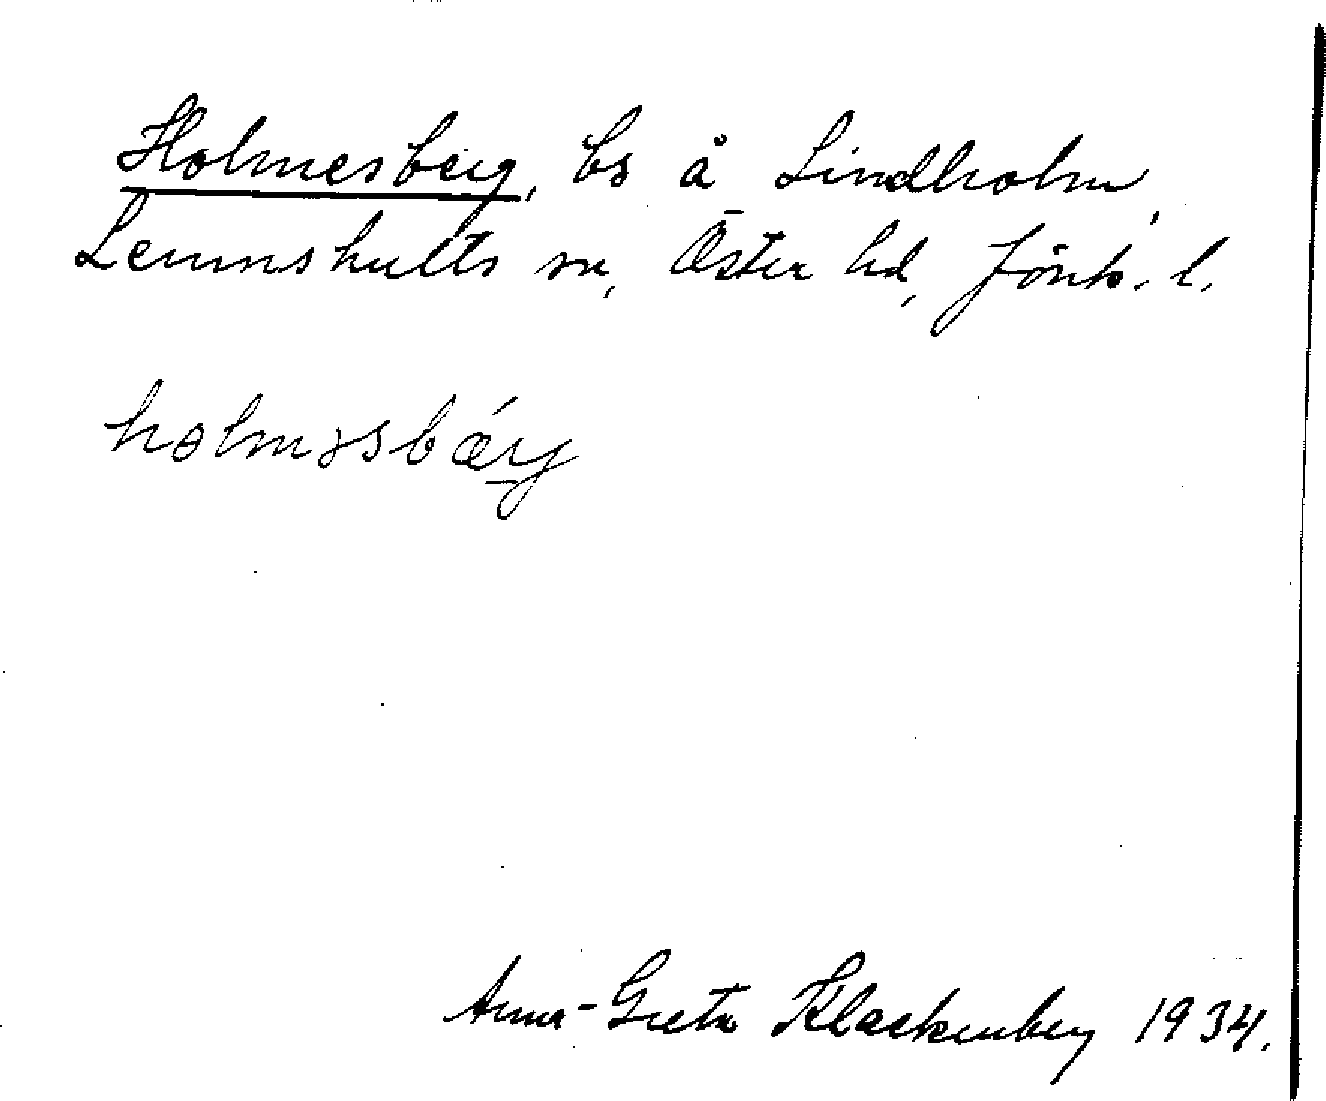 Holmesberg, bs å Lindholm,
Lemnshults sn, Öster hd, Jönk. l.
holməsbáry
Anna-Greta Klackenberg 1934.